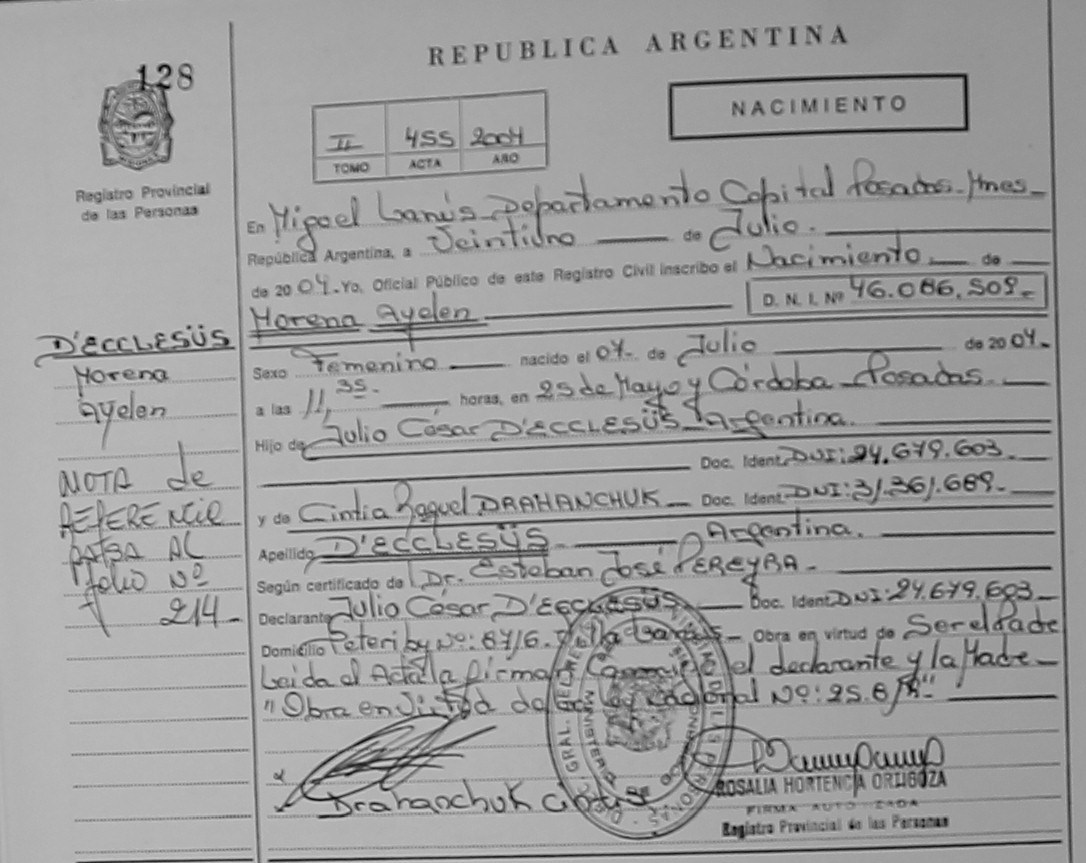 128
REPUBLICA ARGENTINA
NACIMIENTO
II 455 2004
TOMO ACTA AÑO
Registro Provincial
de las Personas
En Miguel Lanús Departamento Capital Posadas Mnes
República Argentina, a Veintiuno de Julio.
de 2004. Yo, Oficial Público de este Registro Civil inscribo el Nacimiento de
Morena Ayelen D. N. I. Nº 46.086.509
D'ECCLESÜS
Morena
Ayelen
Sexo Femenino nacido el 04 de Julio de 2004
a las 11,35 horas, en 25 de Mayo y Córdoba Posadas
Hijo de Julio César D'ECCLESÜS Argentina.
Doc. Ident. DNI: 24.679.603
y de Cintia Raquel DRAHANCHUK Doc. Ident. DNI: 31.361.689
Apellido D'ECCLESÜS Argentina.
NOTA de
REFERENCIA
PASA AL
folio Nº
214
Según certificado de Dr. Esteban José PEREYRA
Declarante Julio César D'ECCLESÜS Doc. Ident. DNI: 24.679.603
Domicilio Nº: 6716. Obra en virtud de Ser el Padre
Leida el Acta la firman el declarante y la Madre
"Obra en Virtud de Nacional Nº: 25.8
Drahanchuk
ROSALIA HORTENCIA ORTIGOZA
FIRMA AUTORIZADA
Registro Provincial de las Personas